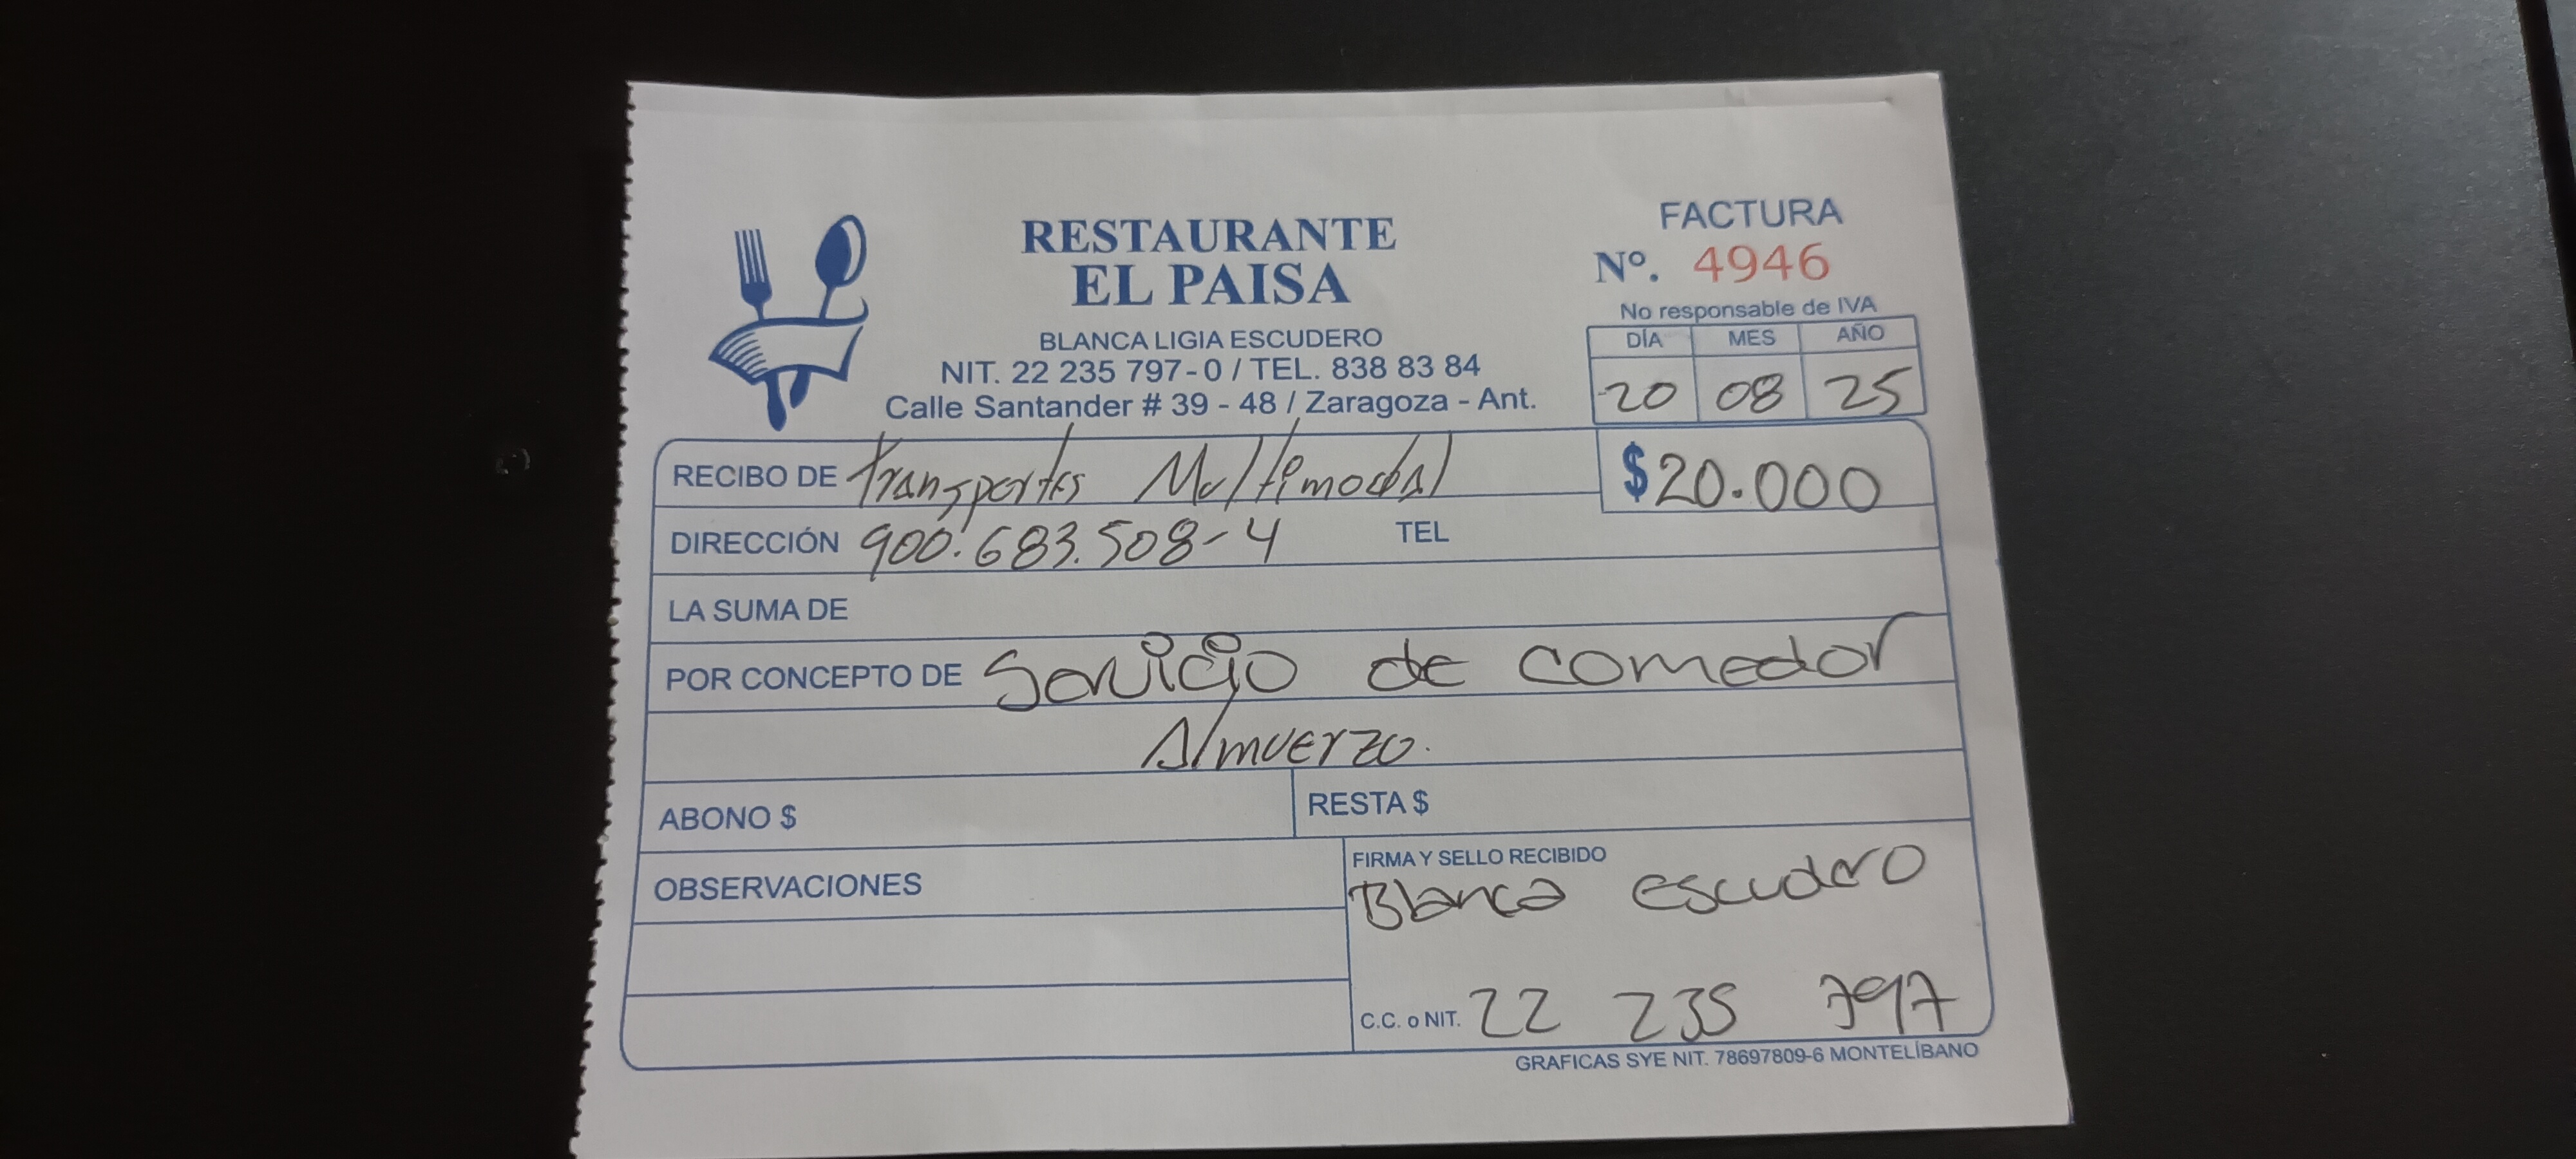 RESTAURANTE
EL PAISA
BLANCA LIGIA ESCUDERO
NIT. 22 235 797-0 / TEL. 838 83 84
Calle Santander # 39 - 48 / Zaragoza - Ant.
FACTURA
Nº. 4946
No responsable de IVA
DÍA MES AÑO
20 08 25
RECIBO DE Transportes Multimodal $20.000
DIRECCIÓN 900.683.508-4 TEL
LA SUMA DE
POR CONCEPTO DE Servicio de comedor
Almuerzo.
ABONO $ RESTA $
OBSERVACIONES
FIRMA Y SELLO RECIBIDO
Blanca escudero
C.C. o NIT. 22 235 797
GRAFICAS SYE NIT. 78697809-6 MONTELÍBANO